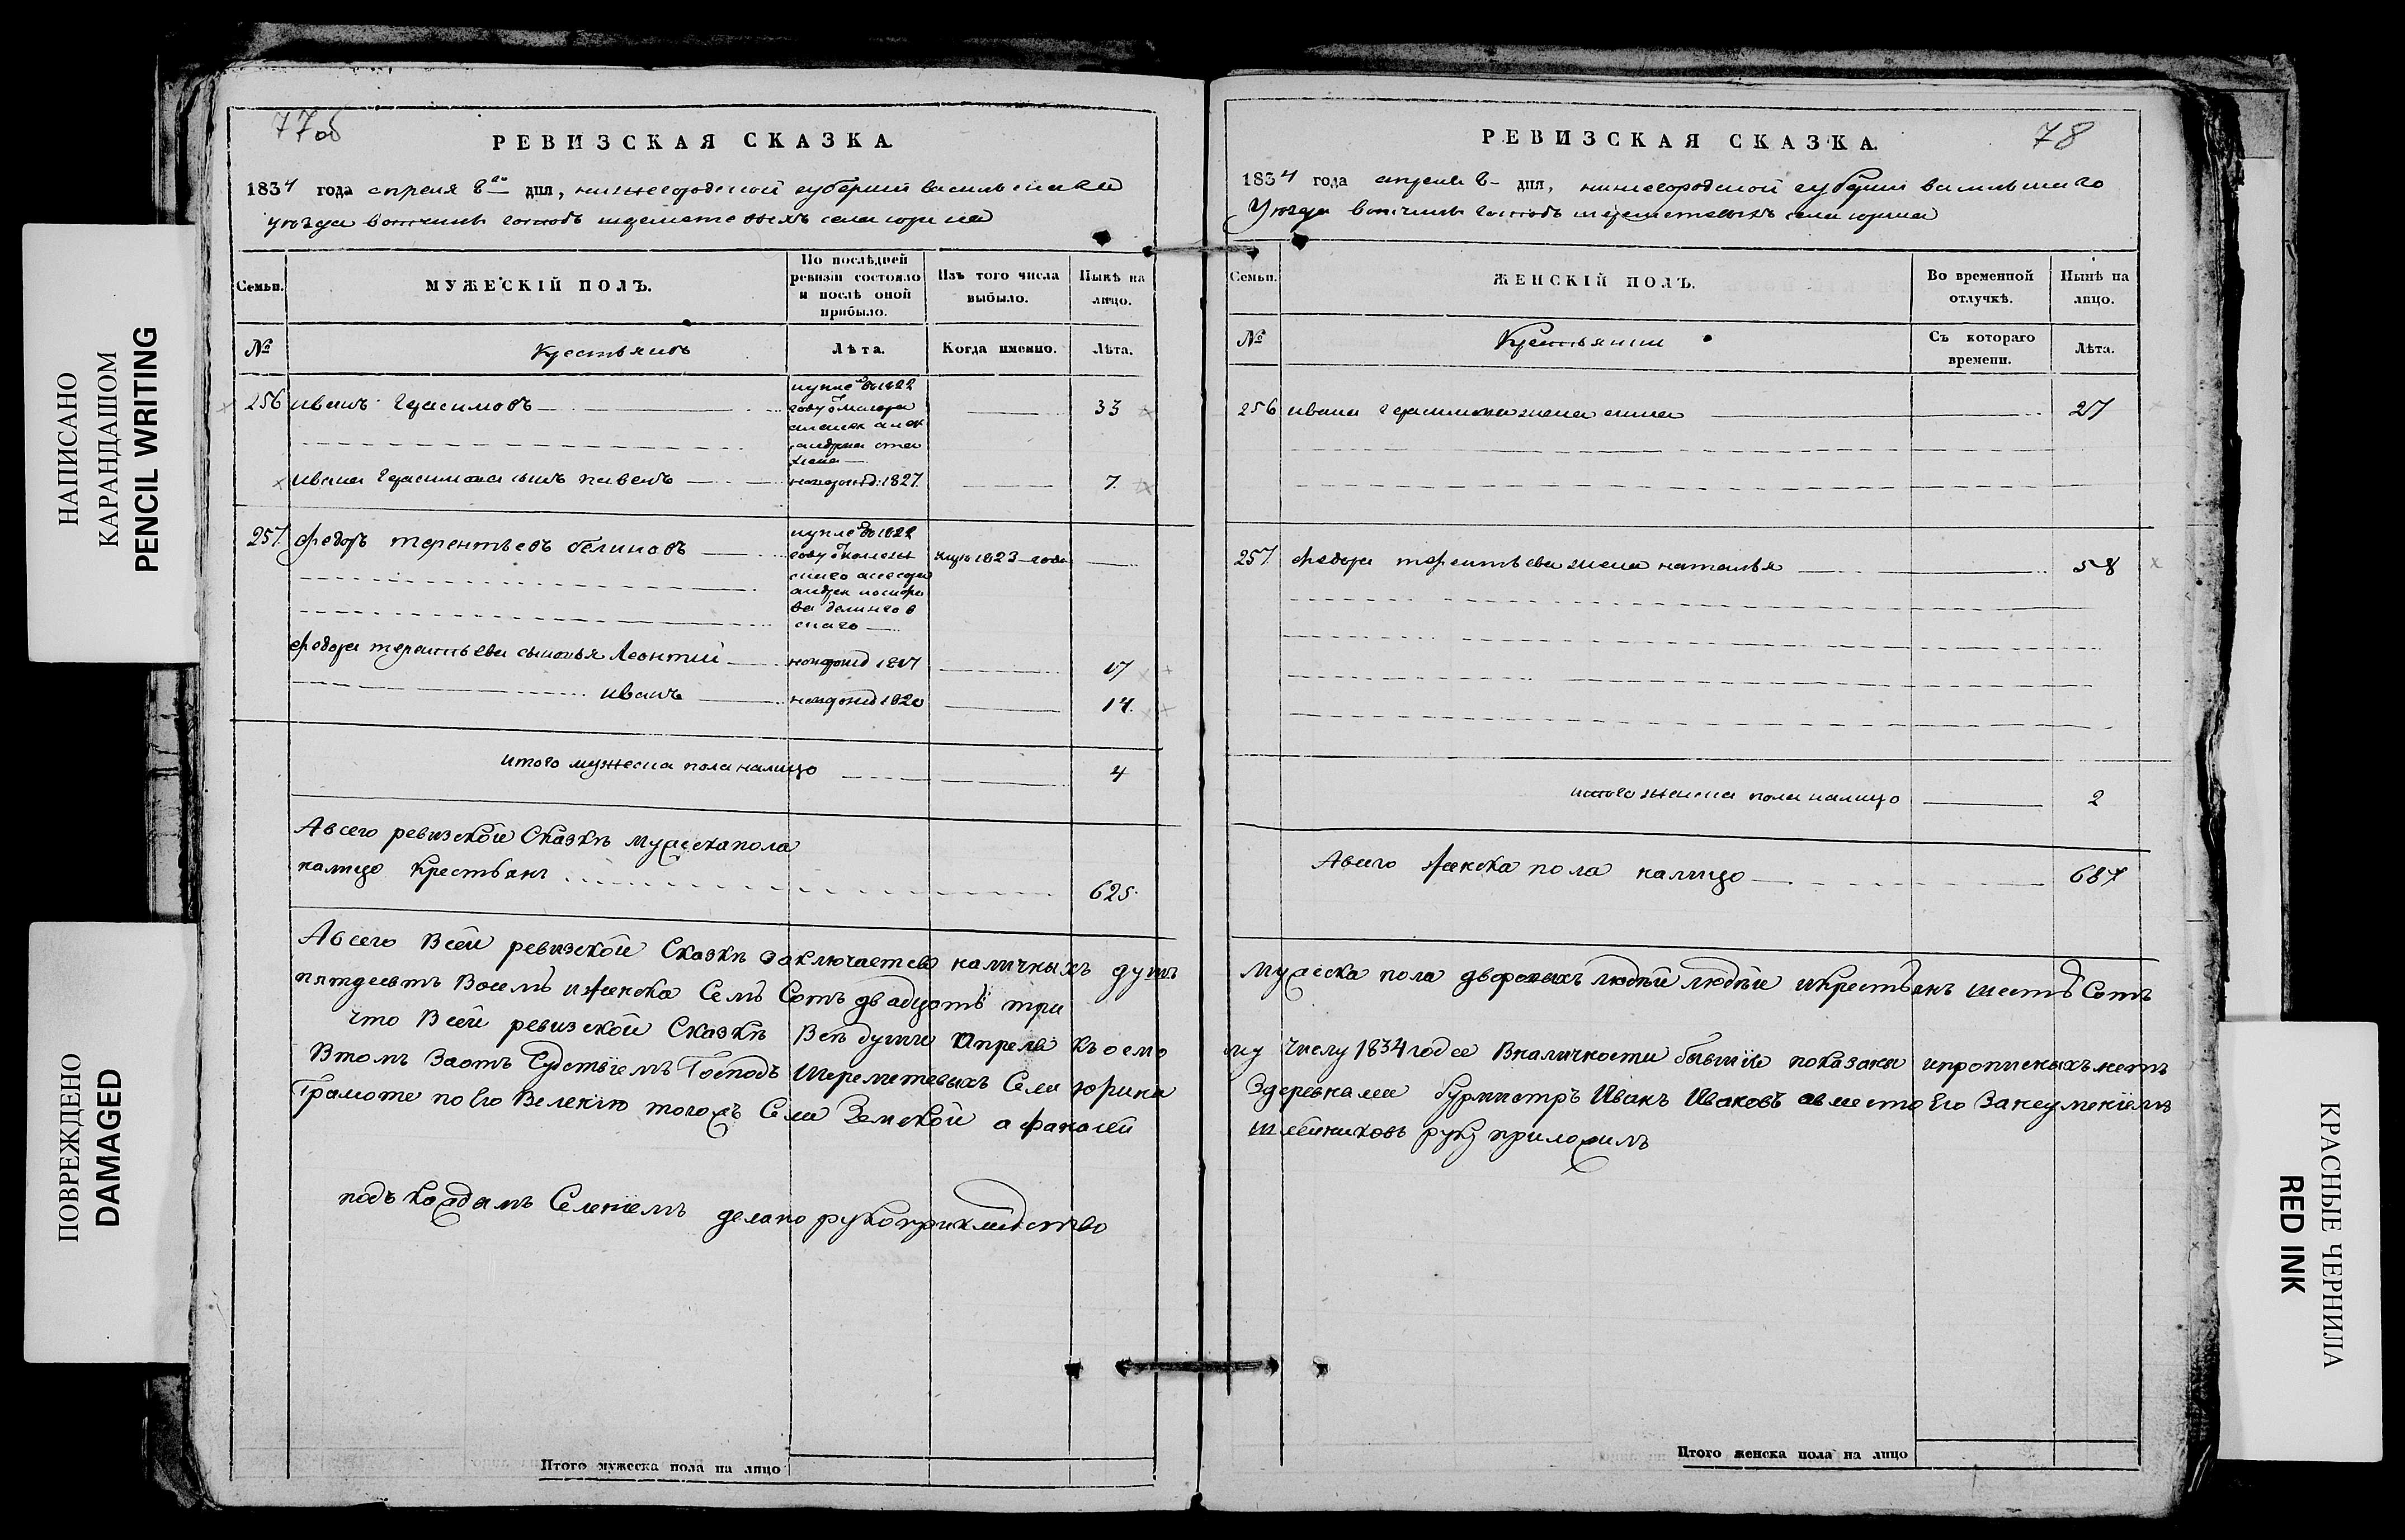 НАПИСАНО
КАРАНДАШОМ
PENCIL WRITING
ПОВРЕЖДЕНО
DAMAGED
77об
РЕВИЗСКАЯ СКАЗКА.
1834 года апреля 8го дня, нижегородской губернии васильской
уезда вотчины господъ шереметевыхъ села юрина
Семьи.
МУЖЕСКІЙ ПОЛЪ.
По послѣдней ревизіи состояло и послѣ оной прибыло.
Изъ того числа выбыло.
Нынѣ на лицо.
№
Крестьянъ
Лѣта.
Когда именно.
Лѣта.
256 иванъ герасимовъ
купле въ 1822
году от маиора
33
ивана герасимова сынъ павелъ
новорожд: 1827.
7.
257. федоръ терентьевъ белиновъ
купле въ 1822
году от
1823 года
федора терентьева сыновья Леонтий
новорожд 1817
17
иванъ
новорожд 1820
14.
итого мужеска пола налицо
4
Авсего ревизской Сказке мужескапола
налицо крестьянъ
625.
Авсего Всей ревизской Сказке заключаетсе наличныхъ душъ
пятдесятъ Восемь иженска Семь Сотъ двадцать три
что Всей ревизской Сказке Все души апреля къ осмо
Втомъ Заотъ Судствiемъ Господъ Шереметевыхъ Села юрина
Грамоте по Его Велению тогожъ Села Земской афанасей
подъ каждымъ Селениемъ делано рукоприкладство
Итого мужеска пола на лицо
78
РЕВИЗСКАЯ СКАЗКА.
1834 года апреля 8 дня, нижегородской губернии васильскаго
Уезда вотчины господъ шереметевыхъ села юрина
Семьи.
ЖЕНСКІЙ ПОЛЪ.
Во временной отлучкѣ.
Нынѣ на лицо.
№
Крестьянки
Съ котораго времени.
Лѣта.
256 ивана герасимова жена анна
27
257. федора терентьева жена наталья
58
итого женска пола налицо
2
Авсего женска пола налицо
687
Мужеска пола дворовыхъ людей людей икрестьянъ шесть Сотъ
му числу 1834 года Вналичности бывшие показаны ипрописныхъ нетъ
Здеревнами бурмистръ Иванъ Ивановъ авместо Его Занеумениемъ
Шлейниковъ руку приложилъ
Итого женска пола на лицо
КРАСНЫЕ ЧЕРНИЛА
RED INK